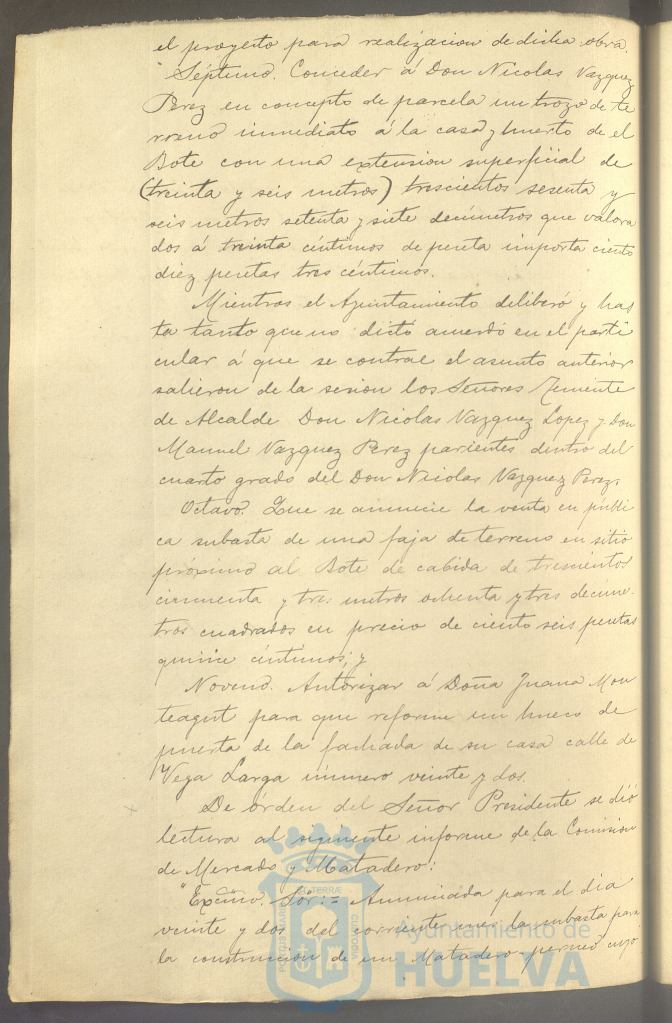 el proyecto para realizacion de dicha obra.
Séptimo. Conceder á Don Nicolas Vazquez
Perez en concepto de parcela un trozo de te
rreno inmediato á la casa y huerto de el
Bote con una extension superficial de
(treinta y seis metros) trescientos sesenta y
seis metros setenta y siete decímetros que valora
dos á treinta céntimos de peseta importa ciento
diez pesetas tres céntimos.
Mientras el Ayuntamiento deliberó y has
ta tanto que no dictó acuerdo en el parti
cular á que se contrae el asunto anterior
salieron de la sesion los Señores Teniente
de Alcalde Don Nicolas Vazquez Lopez y Don
Manuel Vazquez Perez parientes dentro del
cuarto grado del Don Nicolas Vazquez Perez.
Octavo. Que se anuncie la venta en públi
ca subasta de una faja de terreno en sitio
próximo al Bote de cabida de trescientos
cincuenta y tres metros ochenta y tres decíme-
tros cuadrados en precio de ciento seis pesetas
quince céntimos; y
Noveno. Autorizar á Doña Juana Mon
teagut para que reforme un hueco de
puerta de la fachada de su casa calle de
Vega Larga número veinte y dos.
De órden del Señor Presidente se dió
lectura al siguiente informe de la Comision
de Mercado y Matadero:
"Excmo. Sor: = Anunciada para el dia
veinte y dos del corriente mes la subasta para
la construccion de un Matadero
PORTUS MARIS ET TERRÆ CUSTODIA
Ayuntamiento de
HUELVA